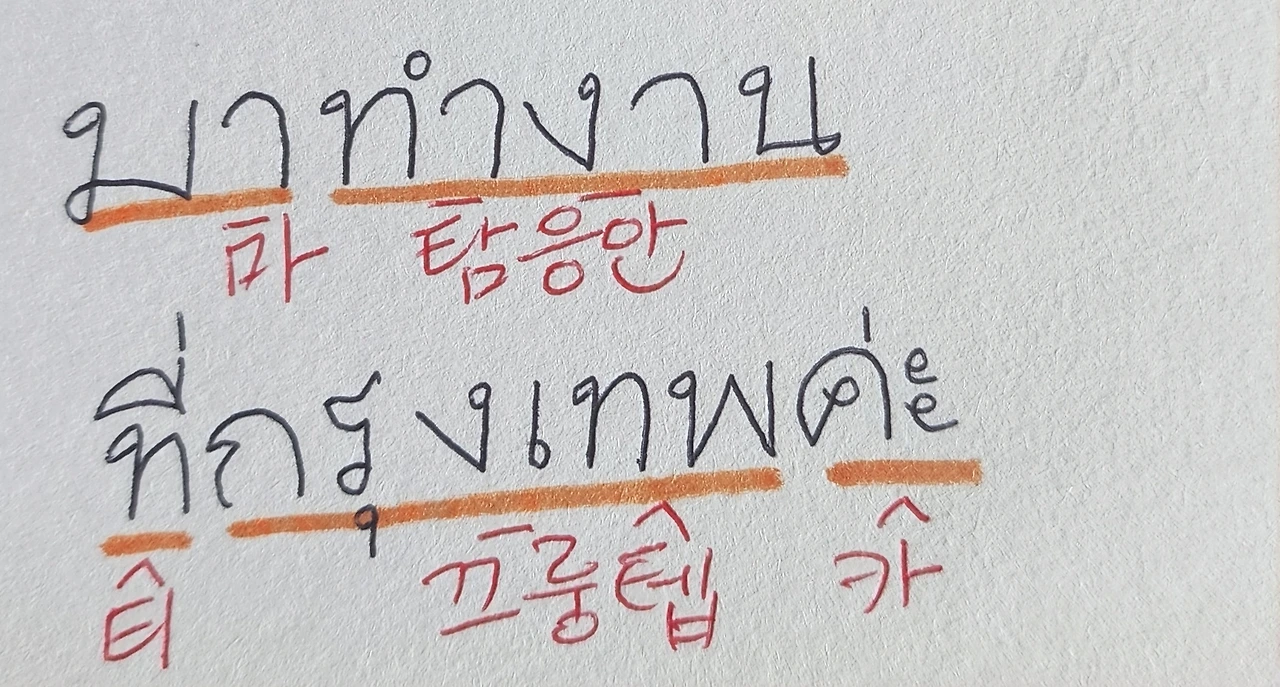 มาทำงาน
마 탐응안
ที่กรุงเทพค่ะ
티 끄룽텝 카